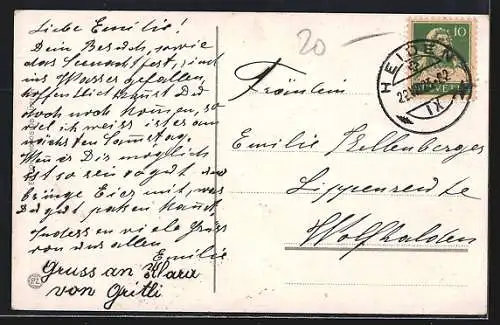 Liebe Emilie!
Dein Besuch, sowie
das Seenachtfest, sind
ins Wasser gefallen,
hoffentlich kannst Du
doch noch kommen, so
viel ich weiss ist er am
nächsten Samstag,
Wenn es Dir möglich
ist so sei so gut und
bringe Eier mit, was
Du gut packen kannst
Indessen viele Grüsse
von uns allen
Emilie
Gruss an Klara
von Gritli
20
HELVETIA
10
HEIDEN
IX
Fräulein
Emilie Kellenberger
Lippenreute
Wolfhalden